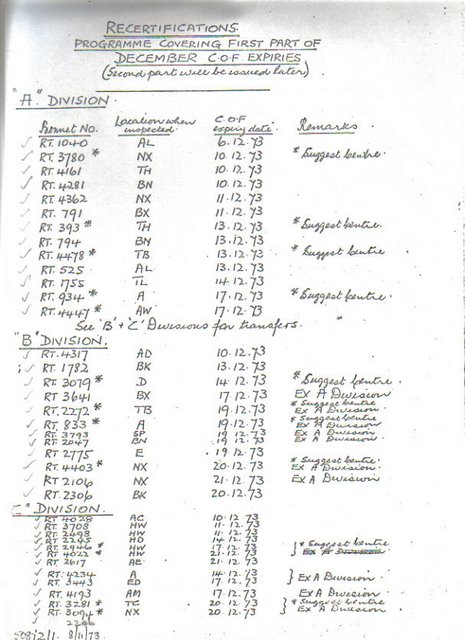 RECERTIFICATIONS
PROGRAMME COVERING FIRST PART OF
DECEMBER C.O.F EXPIRIES
(Second part will be issued later)
"A" DIVISION.
Bonnet No. Location when inspected. C.O.F expiry date. Remarks
RT.1040 AL 6.12.73
RT.3780 * NX 10.12.73 * Suggest Centre.
RT.4161 TH 10.12.73
RT.4281 BN 10.12.73
RT.4362 NX 11.12.73
RT.791 BX 11.12.73
RT.393 * TH 13.12.73 * Suggest Centre.
RT.794 BN 13.12.73
RT.4478 * TB 13.12.73 * Suggest Centre
RT.525 AL 13.12.73
RT.1755 TL 14.12.73
RT.934 * A 17.12.73 * Suggest Centre.
RT.4447 * AW 17.12.73
See 'B' + 'C' Divisions for transfers.
"B" DIVISION.
RT.4317 AD 10.12.73
RT.1782 BK 13.12.73
RT.3079 * D 14.12.73 * Suggest Centre.
RT.3641 BX 17.12.73 Ex A Division
RT.2272 * TB 19.12.73 * Suggest Centre Ex A Division.
RT.833 * A 19.12.73 * Suggest Centre Ex A Division.
RT.3793 SP 19.12.73 Ex A Division
RT.2047 BN 19.12.73 Ex A Division.
RT.2775 E 19.12.73
RT.4403 * NX 20.12.73 * Suggest Centre. Ex A Division.
RT.2106 NX 21.12.73 Ex A Division
RT.2306 BK 20.12.73
"C" DIVISION
RT.4028 AC 10.12.73
RT.3708 HW 11.12.73
RT.2498 HW 11.12.73
HD 14.12.73
RT.2946 * HW 17.12.73 * Suggest Centre
RT.4022 * HW 21.12.73
RT.2617 AE 21.12.73
RT.4234 A 14.12.73 Ex A Division.
RT.3443 ED 17.12.73
RT.4193 AM 17.12.73 Ex A Division
RT.3281 * TC 20.12.73 * Suggest Centre
RT.3094 * NX 20.12.73 Ex A Division
8/11/73.